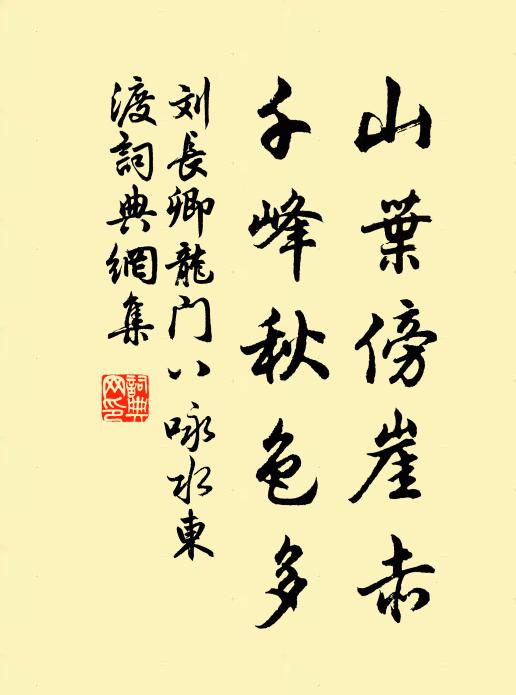 山葉傍崖赤
千峰秋色多
刘長卿龍门八咏水東
渡詞典網集
詞典
网印